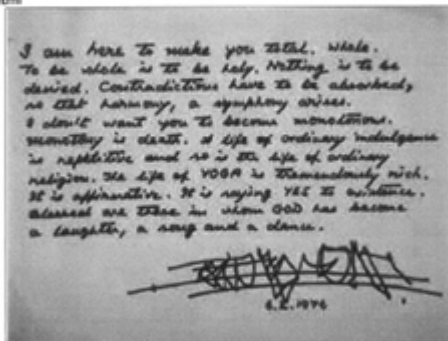 I am here to make you total. Whole.
To be whole is to be holy. Nothing is to be
denied. Contradictions have to be absorbed,
so that harmony, a symphony arises.
I don't want you to become monotonous.
Monotony is death. A life of ordinary indulgence
is repetitive and so is the life of ordinary
religion. The life of YOGA is tremendously rich.
It is affirmative. It is saying YES to existence.
Blessed are those in whom GOD has become
a laughter, a song and a dance.
1976